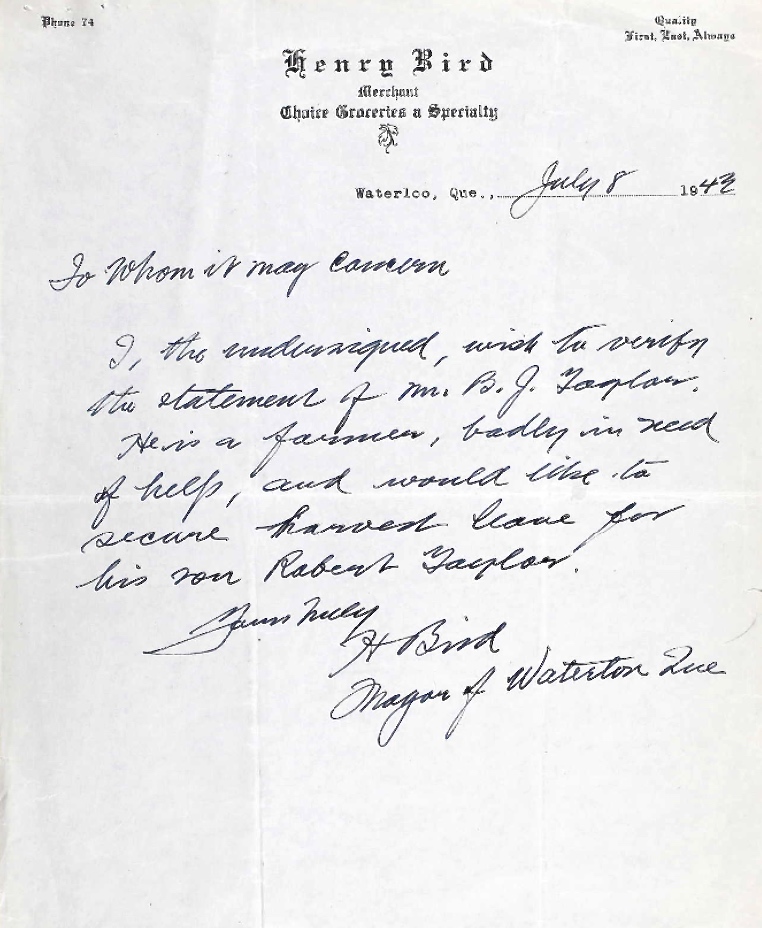 Phone 74
Quality
First, Last, Always
Henry Bird
Merchant
Choice Groceries a Specialty
Waterloo, Que., July 8 1943
To Whom it may Concern
I, the undersigned, wish to verify
the statement of Mr. B. J. Taylor.
He is a farmer, badly in need
of help, and would like to
secure harvest leave for
his son Robert Taylor.
Yours truly
H Bird
Mayor of Waterloo Que